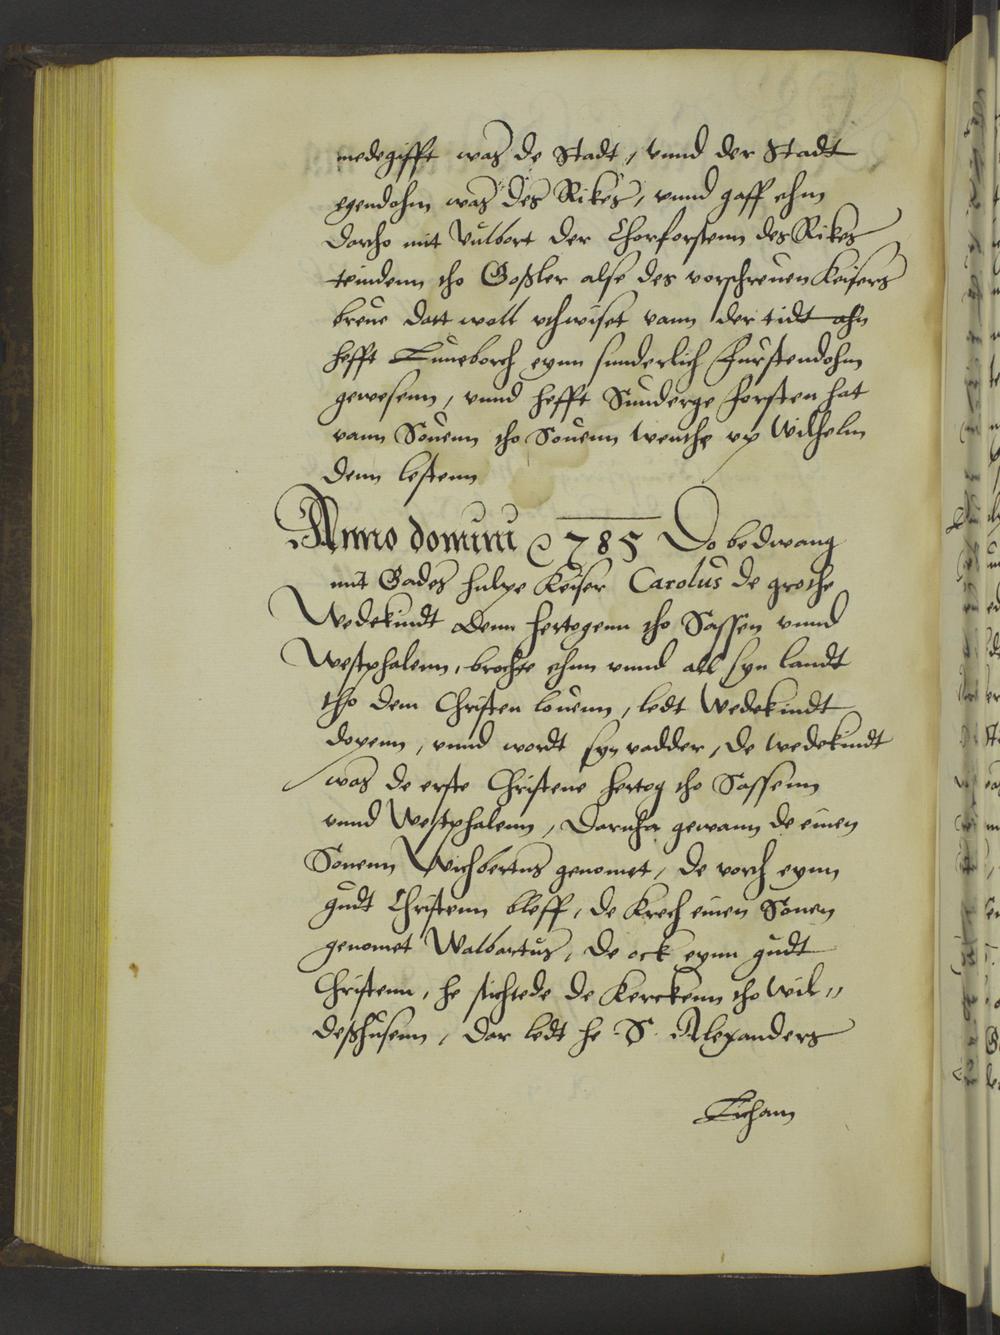 medegifft waß de Stadt, vnnd der Stadt
egendohm waß des Rikes, vnnd gaff ehm
dartho mit Vulbort der Chorforstenn des Rikes
teindenn tho Goßler alse des vorschreuen Keisers
breue datt woll vthwiset vann der tidt ahn
hefft Luneborch eynn sunderlich Furstendohm
gewesenn, vnnd hefft Sunderge forsten hat
vann Sonenn tho Sonenn wenthe vp Wilhelm
denn lestenn
Anno domini 785 Do bedwang
mit Gades hulpe Keiser Carolus de grothe
Wedekindt denn hertogenn tho Sassen vnnd
Westphalenn, brochte ehnn vnnd all syn landt
tho dem Christen louenn, ledt Wedekindt
dopenn, vnnd wordt syn vadder, de wedekindt
was de erste Christene hertog tho Sassenn
vnnd Westphalenn, Darnha gewann de einen
Sonenn Wichbertus genomet, de vorth eynn
gudt Christenn bleff, de Krech einen Sonen
genomet Walbartus, de ock eynn gudt
Christenn, he stichtede de Kerckenn tho Wil„
deßhusenn, dar ledt he S. Alexanders
Licham